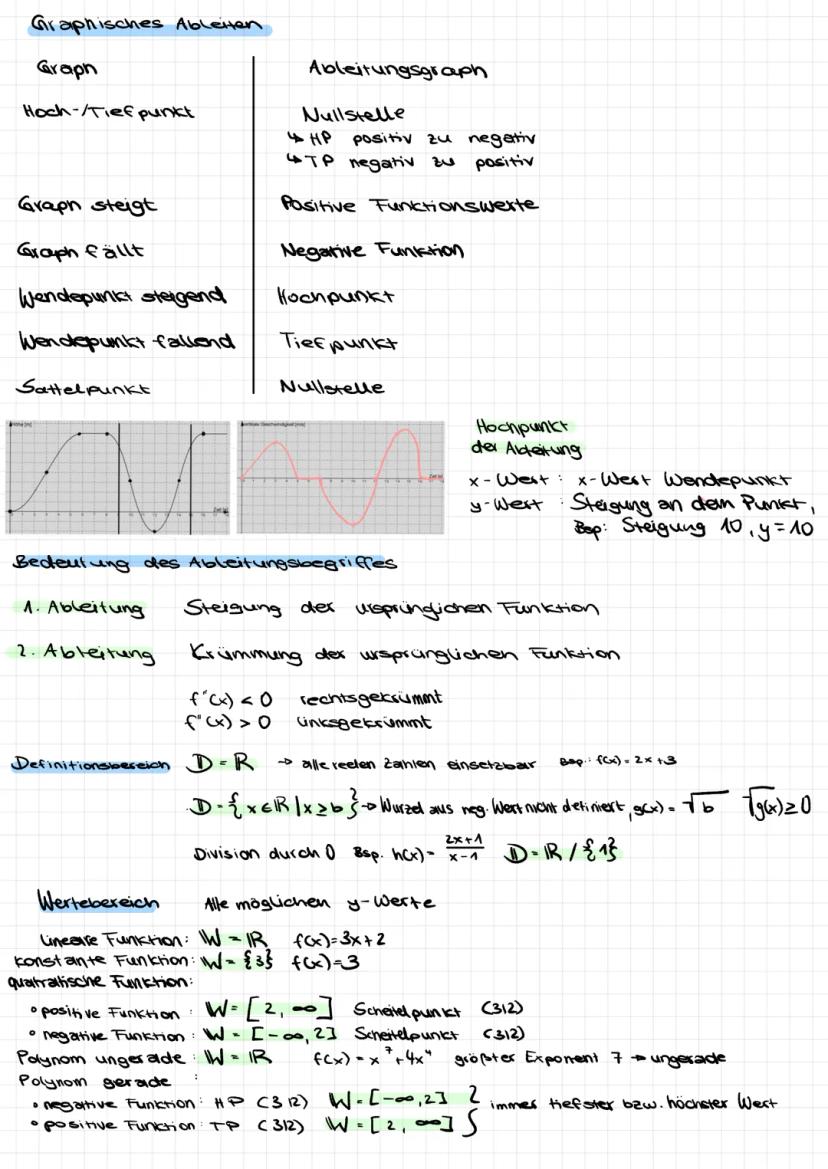 Graphisches Ableiten
Graph Ableitungsgraph
Hoch-/Tiefpunkt Nullstelle
↳ HP positiv zu negativ
↳ TP negativ zu positiv
Graph steigt Positive Funktionswerte
Graph fällt Negative Funktion
Wendepunkt steigend Hochpunkt
Wendepunkt fallend Tiefpunkt
Sattelpunkt Nullstelle
Höhe [m]
Zeit [s]
vertikale Geschwindigkeit [m/s]
Zeit [s]
Hochpunkt
der Ableitung
x-Wert : x-Wert Wendepunkt
y-Wert : Steigung an dem Punkt,
Bsp: Steigung 10, y=10
Bedeutung des Ableitungsbegriffes
1. Ableitung Steigung der ursprünglichen Funktion
2. Ableitung Krümmung der ursprünglichen Funktion
f''(x) < 0 rechtsgekrümmt
f''(x) > 0 linksgekrümmt
Definitionsbereich D = R → alle reelen Zahlen einsetzbar Bsp.: f(x) = 2x+3
D = {x∈ℝ | x≥b} → Wurzel aus neg. Wert nicht definiert, g(x) = √b √g(x) ≥ 0
Division durch 0 Bsp. h(x) = (2x+1)/(x-1) D = ℝ / {1}
Wertebereich Alle möglichen y-Werte
Lineare Funktion: W = ℝ f(x)=3x+2
konstante Funktion: W = {3} f(x)=3
quatratische Funktion:
• positive Funktion : W = [2, ∞] Scheitelpunkt (3|2)
• negative Funktion: W = [-∞, 2] Scheitelpunkt (3|2)
Polynom ungerade : W = ℝ f(x) = x⁷+4x⁴ größter Exponent 7 → ungerade
Polynom gerade :
• negative Funktion: HP (3|2) W = [-∞, 2] } immer tiefster bzw. höchster Wert
• positive Funktion: TP (3|2) W = [2, ∞]